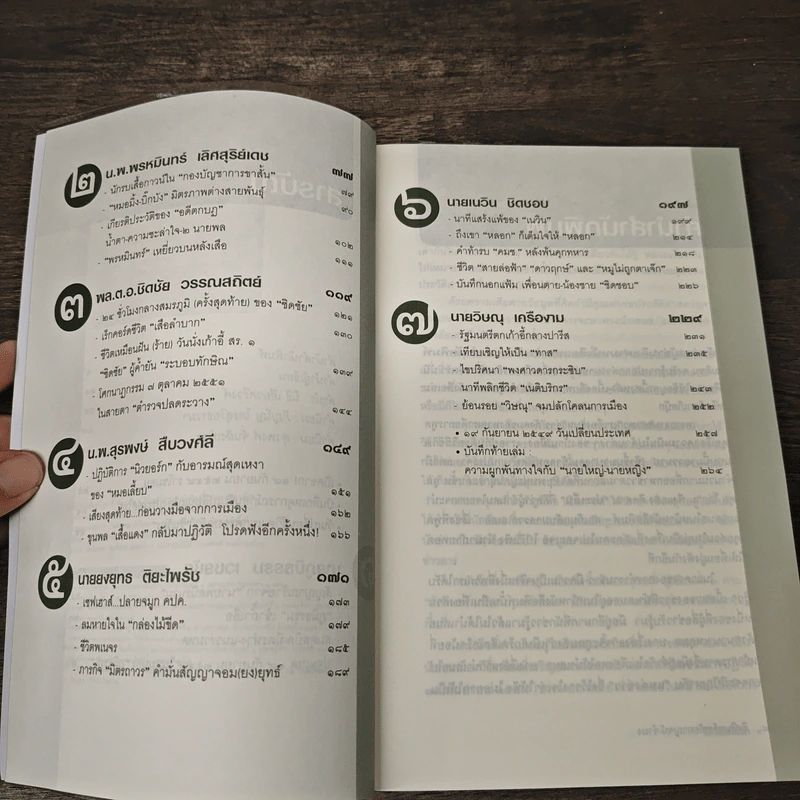 ๒ น.พ.พรหมินทร์ เลิศสุริย์เดช ๗๗
- นักรบเสื้อกาวน์ใน "กองบัญชาการขาสั้น" ๗๙
- "หมอมิ้ง-บิ๊กบัง" มิตรภาพต่างสายพันธุ์ ๙๐
- เกียรติประวัติของ "อดีตกบฏ"
น้ำตา-ความชะล่าใจ-๒ นายพล ๑๐๒
- "พรหมินทร์" เหยี่ยวบนหลังเสือ ๑๑๑
๓ พล.ต.อ.ชิดชัย วรรณสถิตย์ ๑๑๙
- ๒๔ ชั่วโมงกลางสมรภูมิ (ครั้งสุดท้าย) ของ "ชิดชัย" ๑๒๑
- เร็กคอร์ดชีวิต "เสือลำบาก" ๑๓๐
- ชีวิตเหมือนฝัน (ร้าย) วันนั่งเก้าอี้ สร. ๑
"ชิดชัย" ผู้ค้ำยัน "ระบอบทักษิณ" ๑๓๙
- โศกนาฏกรรม ๗ ตุลาคม ๒๕๕๑
ในสายตา "ตำรวจปลดระวาง" ๑๔๔
๔ น.พ.สุรพงษ์ สืบวงศ์ลี ๑๔๙
- ปฏิบัติการ "นิวยอร์ก" กับอารมณ์สุดเหงา
ของ "หมอเลี้ยบ" ๑๕๑
- เสียงสุดท้าย...ก่อนวางมือจากการเมือง ๑๖๒
- ขุนพล "เสื้อแดง" กลับมาปฏิวัติ โปรดฟังอีกครั้งหนึ่ง! ๑๖๖
๕ นายยงยุทธ ติยะไพรัช ๑๗๑
- เซฟเฮาส์...ปลายจมูก คปค. ๑๗๓
- ลมหายใจใน "กล่องไม้ขีด" ๑๗๙
- ชีวิตพเนจร ๑๘๕
- ภารกิจ "มิตรถาวร" คำมั่นสัญญาจอม(ยง)ยุทธ์ ๑๘๙
๖ นายเนวิน ชิดชอบ ๑๙๗
- นาทีแสร้งแพ้ของ "เนวิน" ๑๙๙
- ถึงเขา "หลอก" ก็เต็มใจให้ "หลอก" ๒๑๔
- คำท้ารบ "คมช." หลังพ้นคุกทหาร ๒๑๘
- ชีวิต "สายล่อฟ้า" "ดาวฤกษ์" และ "หมูไม่ถูกตาเจ๊ก" ๒๒๓
- บันทึกนอกแฟ้ม เพื่อนตาย-น้องชาย "ชิดชอบ" ๒๒๖
๗ นายวิษณุ เครืองาม ๒๒๙
- รัฐมนตรีตกเก้าอี้กลางปารีส ๒๓๑
- เทียบเชิญให้เป็น "ทาส" ๒๓๕
- ไขปริศนา "พงศาวดารกระซิบ"
นาทีพลิกชีวิต "เนติบริกร" ๒๔๓
- ย้อนรอย "วิษณุ" จมปลักโคลนการเมือง ๒๕๒
• ๑๙ กันยายน ๒๕๔๙ วันเปลี่ยนประเทศ ๒๕๗
• บันทึกท้ายเล่ม :
ความผูกพันทางใจกับ "นายใหญ่-นายหญิง" ๒๖๔